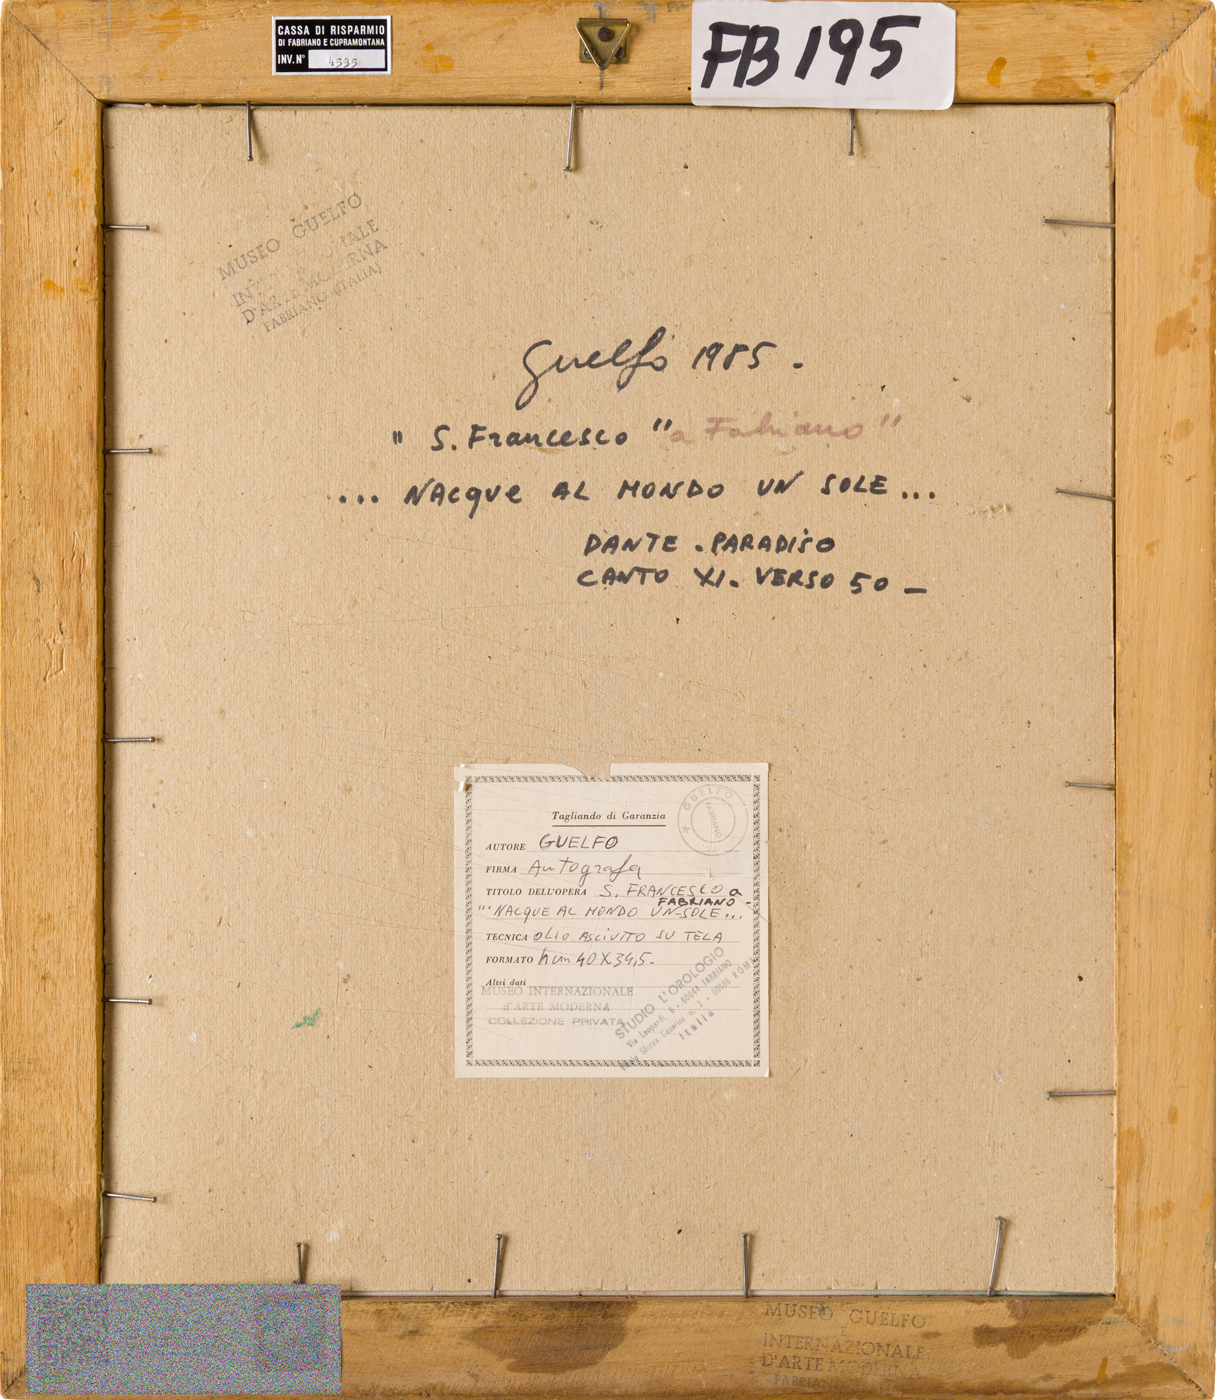 CASSA DI RISPARMIO
DI FABRIANO E CUPRAMONTANA
INV. N° 4535
FB 195
MUSEO GUELFO
D'ARTE MODERNA
FABRIANO (ITALIA)
Guelfo 1985.
" S. Francesco " a Fabriano "
... NACQUE AL MONDO UN SOLE ...
DANTE . PARADISO
CANTO XI. VERSO 50 -
Tagliando di Garanzia
GUELFO
FABRIANO
AUTORE GUELFO
FIRMA Autografa
TITOLO DELL'OPERA S. FRANCESCO a
FABRIANO -
"NACQUE AL MONDO UN SOLE...
TECNICA OLIO ASCIUTTO SU TELA
FORMATO 40 X 34,5.
Altri dati
MUSEO INTERNAZIONALE
d'ARTE MODERNA
COLLEZIONE PRIVATA
STUDIO L'OROLOGIO
Via Leopardi, 60044 FABRIANO
ROMA
Italia
MUSEO GUELFO
INTERNAZIONALE
D'ARTE MODERNA
FABRIANO